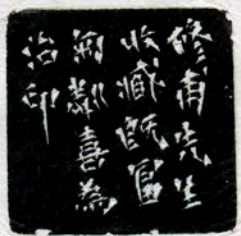 修甫先生
收藏既富
菊鄰喜為
治印